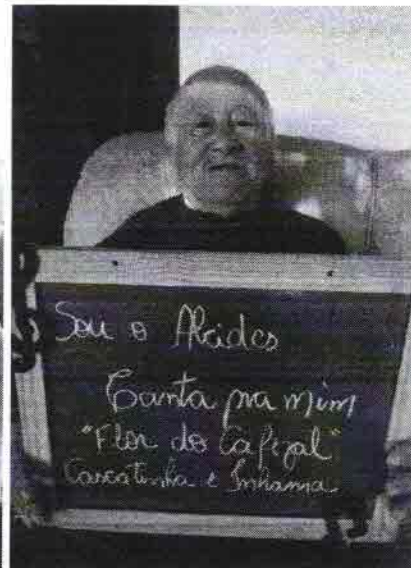 Sou o Alcides
Canta pra mim
"Flor do Cafezal"
Cascatinha e Inhana